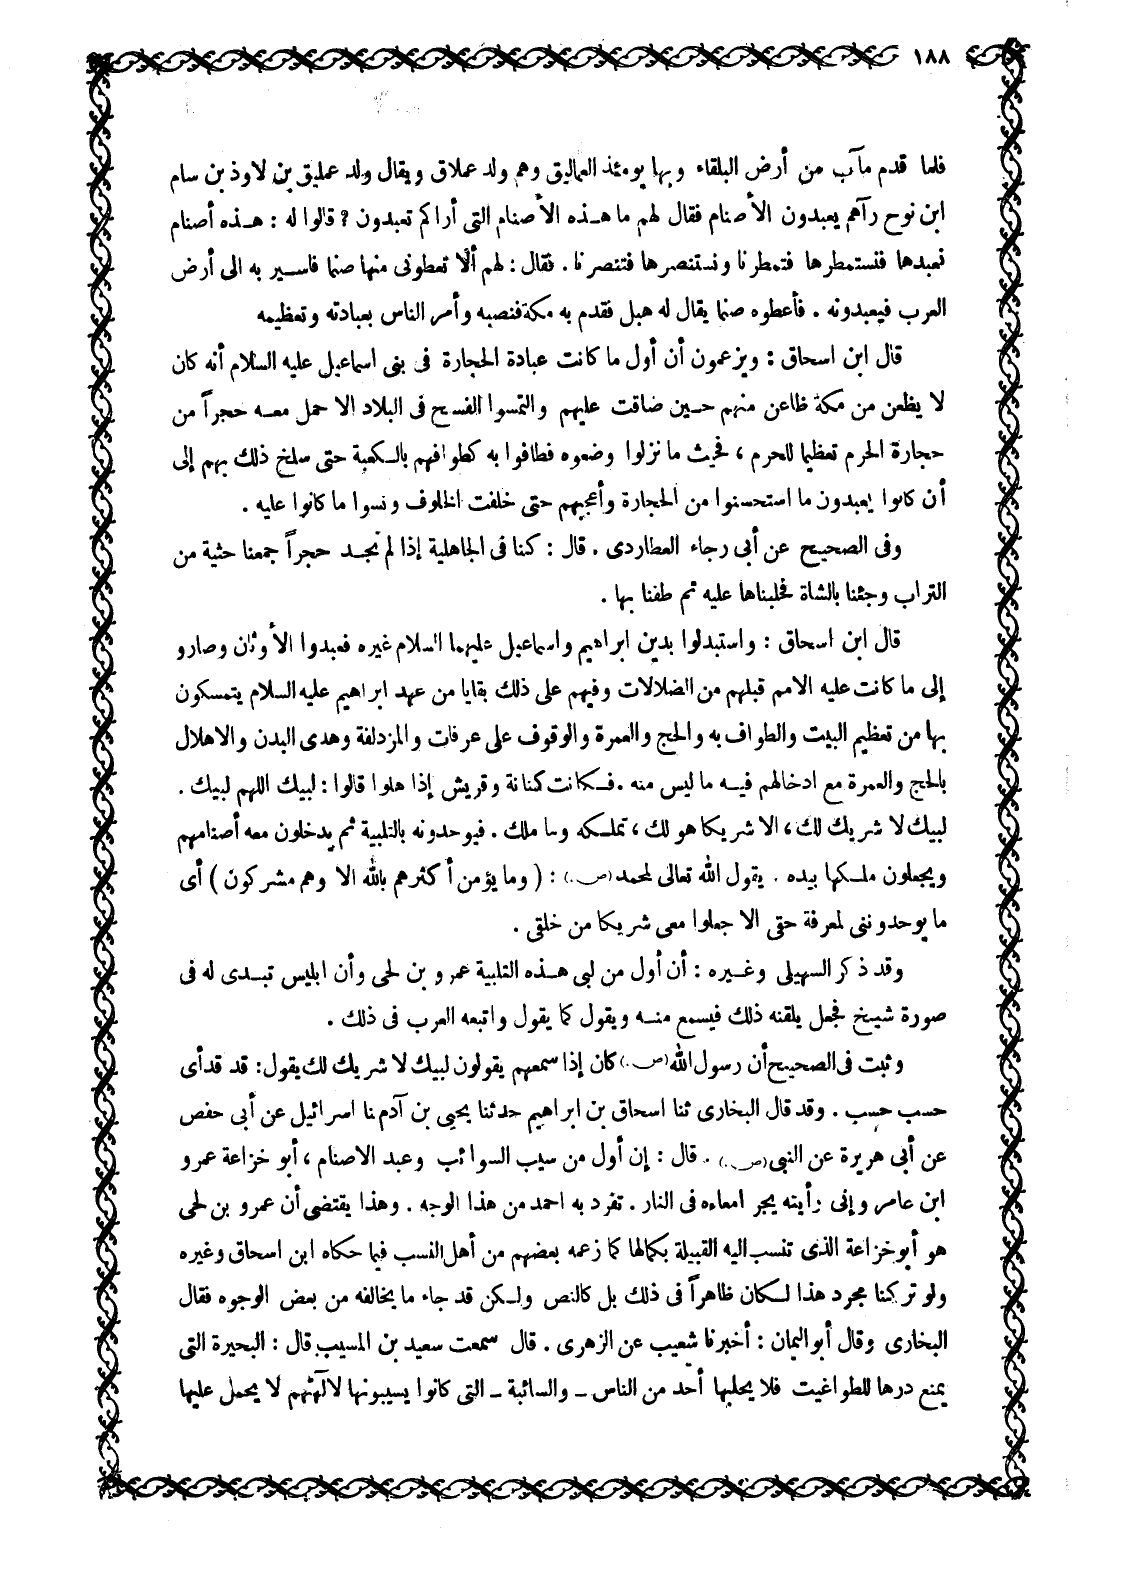 ١٨٨
فلما قدم مآب من أرض البلقاء وبها يومئذ العماليق وهم ولد عملاق ويقال ولد عمليق بن لاوذ بن سام
ابن نوح رآهم يعبدون الأصنام فقال لهم ما هذه الأصنام التى أراكم تعبدون ؟ قالوا له : هذه أصنام
نعبدها فنستمطرها فتمطرنا ونستنصرها فتنصرنا . فقال : لهم ألا تعطونى منها صنما فاسير به الى أرض
العرب فيعبدونه . فأعطوه صنما يقال له هبل فقدم به مكة فنصبه وأمر الناس بعبادته وتعظيمه
قال ابن اسحاق : ويزعمون أن أول ما كانت عبادة الحجارة فى بنى اسماعيل عليه السلام أنه كان
لا يظعن من مكة ظاعن منهم حين ضاقت عليهم والتمسوا الفسح فى البلاد الا حمل معه حجراً من
حجارة الحرم تعظيما للحرم ، فحيث ما نزلوا وضعوه فطافوا به كطوافهم بالكعبة حتى سلخ ذلك بهم إلى
أن كانوا يعبدون ما استحسنوا من الحجارة وأعجبهم حتى خلفت الخلوف ونسوا ما كانوا عليه .
وفى الصحيح عن أبى رجاء العطاردى . قال : كنا فى الجاهلية إذا لم نجد حجراً جمعنا حثية من
التراب وجئنا بالشاة فحلبناها عليه ثم طفنا بها .
قال ابن اسحاق : واستبدلوا بدين ابراهيم واسماعيل عليهما السلام غيره فعبدوا الأوثان وصارو
إلى ما كانت عليه الامم قبلهم من الضلالات وفيهم على ذلك بقايا من عهد ابراهيم عليه السلام يتمسكون
بها من تعظيم البيت والطواف به والحج والعمرة والوقوف على عرفات والمزدلفة وهدى البدن والاهلال
بالحج والعمرة مع ادخالهم فيه ما ليس منه . فكانت كنانة وقريش إذا هلوا قالوا : لبيك اللهم لبيك .
لبيك لا شريك لك ، الا شريكا هو لك ، تملكه وما ملك . فيوحدونه بالتلبية ثم يدخلون معه أصنامهم
ويجعلون ملكها بيده . يقول الله تعالى لمحمد (ص) : ( وما يؤمن أكثرهم بالله الا وهم مشركون ) أى
ما يوحدوننى لمعرفة حتى الا جعلوا معى شريكا من خلقى .
وقد ذكر السهيلى وغيره : أن أول من لبى هذه التلبية عمرو بن لحى وأن ابليس تبدى له فى
صورة شيخ فجعل يلقنه ذلك فيسمع منه ويقول كما يقول واتبعه العرب فى ذلك .
وثبت فى الصحيح أن رسول الله (ص) كان إذا سمعهم يقولون لبيك لا شريك لك يقول : قد قد أى
حسب حسب . وقد قال البخارى ثنا اسحاق بن ابراهيم حدثنا يحيى بن آدم نا اسرائيل عن أبى حفص
عن أبى هريرة عن النبى (ص) . قال : إن أول من سيب السوائب وعبد الاصنام ، أبو خزاعة عمرو
ابن عامر وإنى رأيته يجر امعاءه فى النار . تفرد به احمد من هذا الوجه . وهذا يقتضى أن عمرو بن لحى
هو أبو خزاعة الذى تنسب اليه القبيلة بكمالها كما زعمه بعضهم من أهل النسب فيما حكاه ابن اسحاق وغيره
ولو تركنا مجرد هذا لكان ظاهراً فى ذلك بل كالنص ولكن قد جاء ما يخالفه من بعض الوجوه فقال
البخارى وقال أبو اليمان : أخبرنا شعيب عن الزهرى . قال سمعت سعيد بن المسيب قال : البحيرة التى
يمنع درها للطواغيت فلا يحلبها أحد من الناس ــ والسائبة ــ التى كانوا يسيبونها لآلهتهم لا يحمل عليها